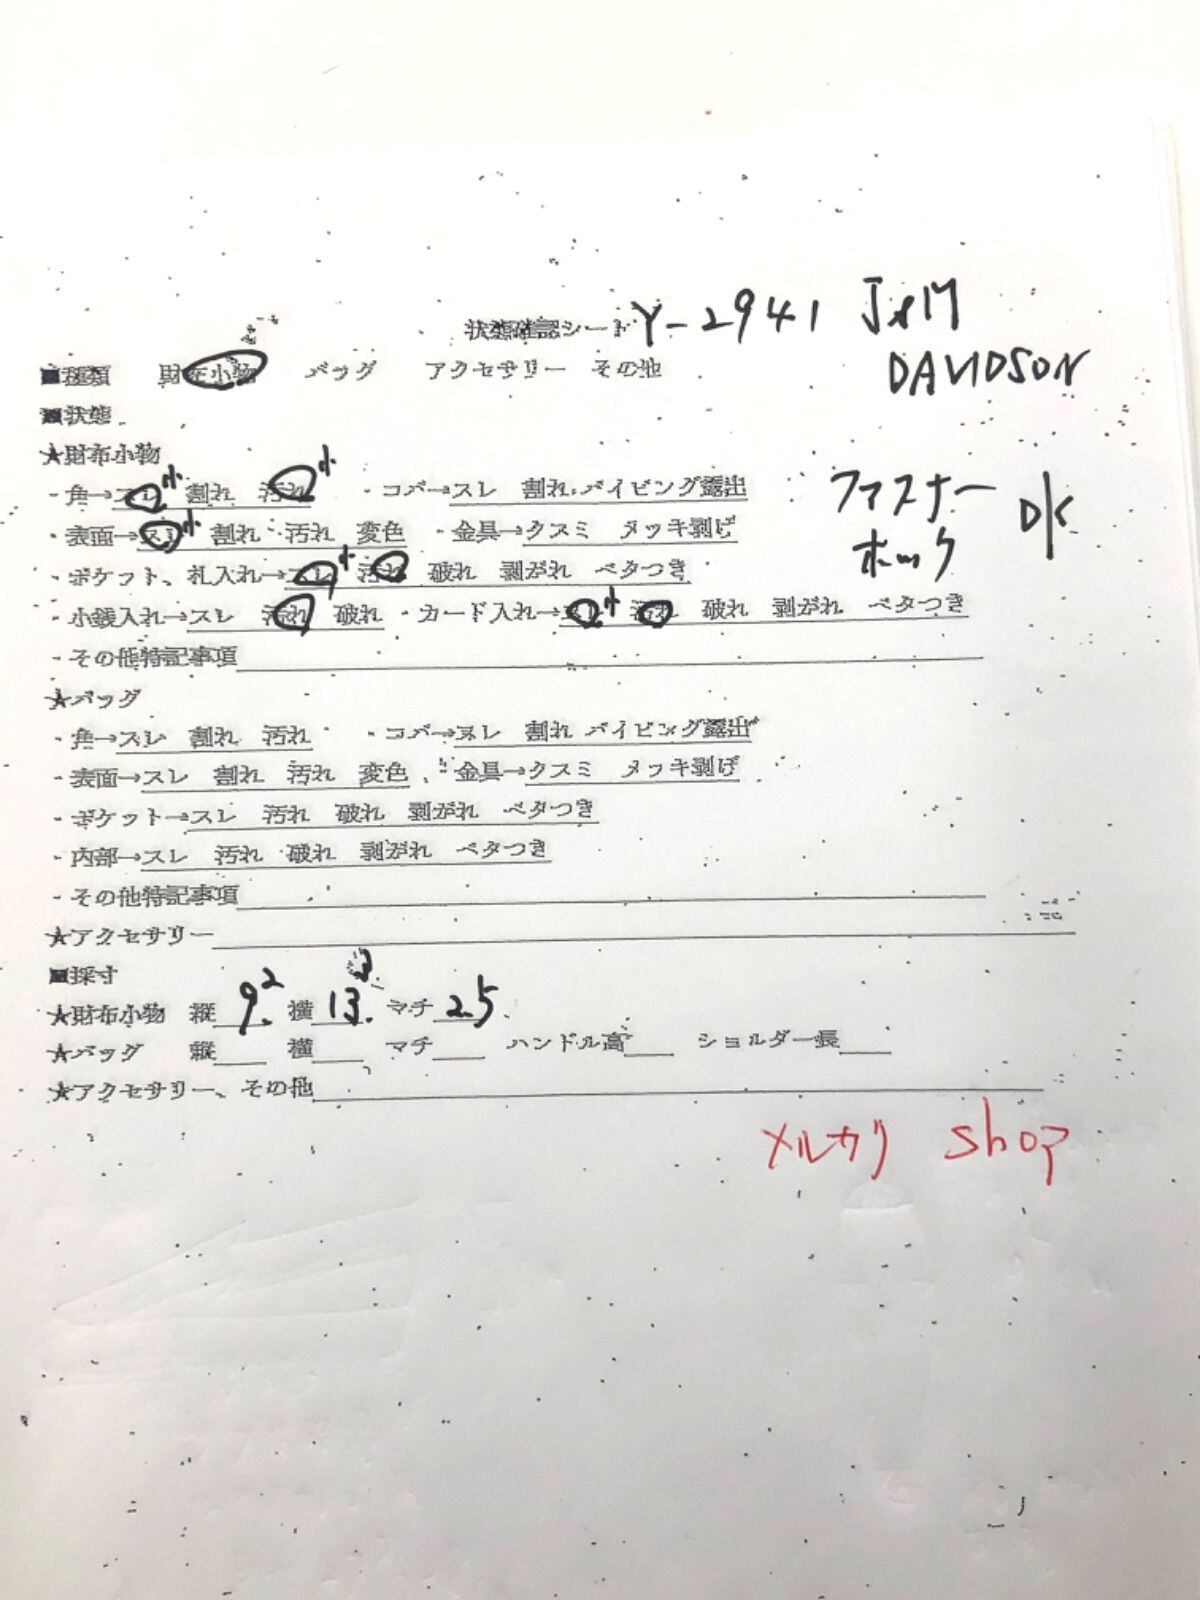 状態確認シート Y-2941 J&M
DAVIDSON
■種類 財布小物 バッグ アクセサリー その他
■状態
★財布小物
・角→スレ小 割れ 汚れ小 ・コバ→スレ 割れ パイピング露出
ファスナー OK
・表面→スレ小 割れ 汚れ 変色 ・金具→クスミ メッキ剥げ
ホック
・ポケット、札入れ→スレ小 汚れ 破れ 剥がれ ベタつき
・小銭入れ→スレ 汚れ 破れ ・カード入れ→スレ小 汚れ 破れ 剥がれ ベタつき
・その他特記事項
★バッグ
・角→スレ 割れ 汚れ ・コバ→スレ 割れ パイピング露出
・表面→スレ 割れ 汚れ 変色 ・金具→クスミ メッキ剥げ
・ポケット→スレ 汚れ 破れ 剥がれ ベタつき
・内部→スレ 汚れ 破れ 剥がれ ベタつき
・その他特記事項
★アクセサリー
■採寸
★財布小物 縦 9.2 横 13.2 マチ 2.5
★バッグ 縦 横 マチ ハンドル高 ショルダー長
★アクセサリー、その他
メルカリ shop